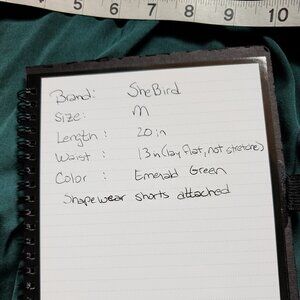 4 5 6 7 8 9 10
Brand: SheBird
Size: M
Length: 20in
Waist: 13in (lay flat, not stretched)
Color: Emerald Green
Shapewear shorts attached